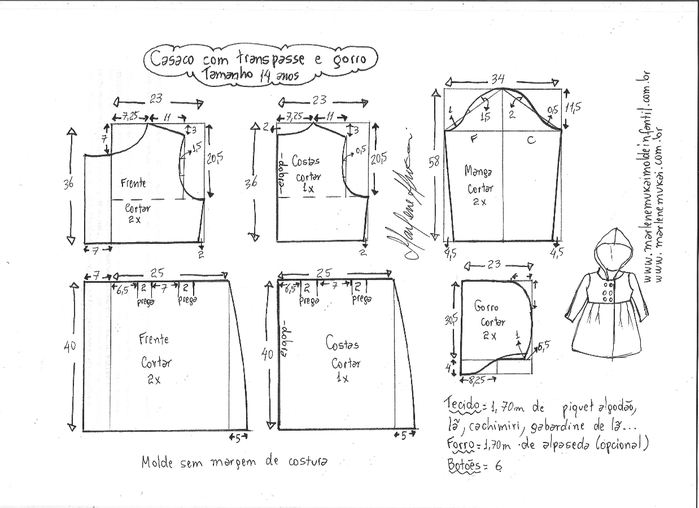 Casaco com transpasse e gorro
Tamanho 14 anos
23
7,25 11
7
3
1,5
20,5
36
Frente
Cortar
2x
7
2
23
7,25 11
2
3
0,5
20,5
36
dobra
Costas
cortar
1x
2
34
1
1,5
2
0,5
11,5
F
C
58
Manga
Cortar
2x
4,5
4,5
7
25
6,5 2 7 2
prega prega
40
Frente
Cortar
2x
5
25
6,5 2 7 2
prega prega
40
dobra
Costas
Cortar
1x
5
23
30,5
Gorro
Cortar
2x
1
5,5
4
8,25
Marlene Mukai
www.marlenemukaimoldeinfantil.com.br
www.marlenemukai.com.br
Tecido = 1,70m de piquet algodão,
lã, cachimiri, gabardine de lã...
Forro = 1,70m de alpaseda (opcional)
Botões = 6
Molde sem margem de costura